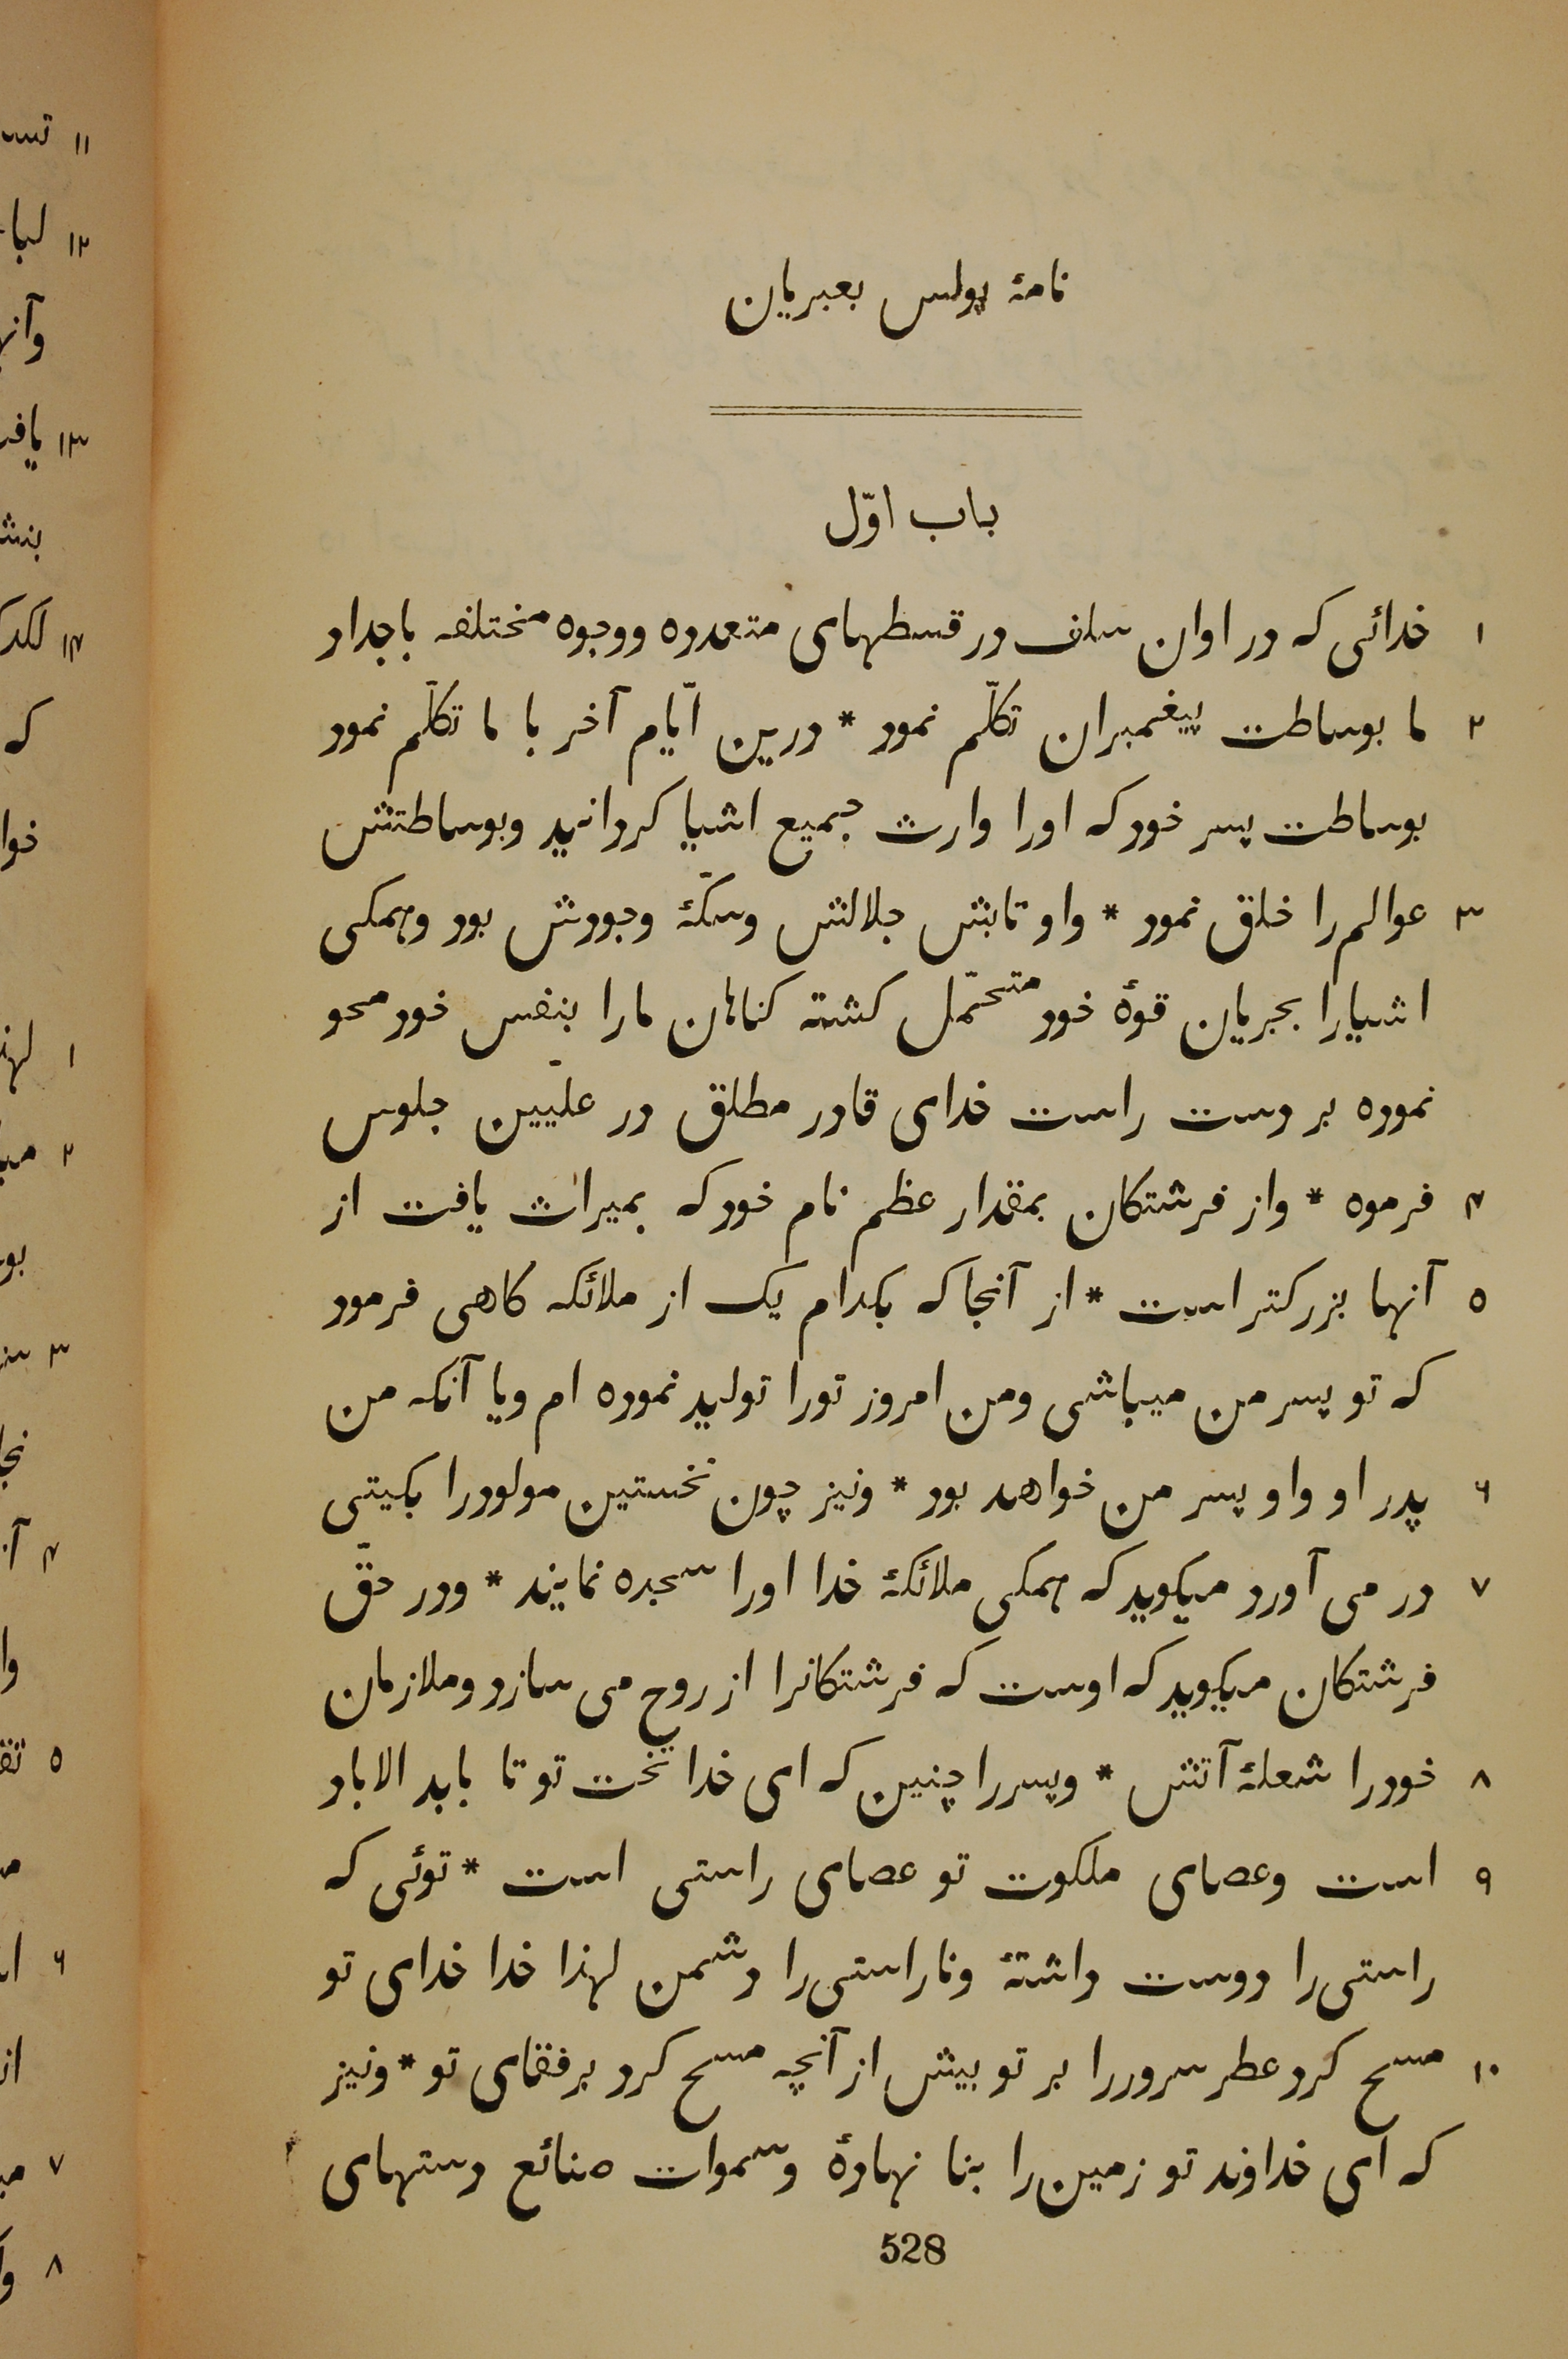 نامهٔ پولس بعبریان
باب اوّل
۱ خدائی که در اوان سلف در قسطهای متعدده ووجوه مختلفه باجداد
۲ ما بوساطت پیغمبران تکلّم نمود * درین ایّام آخر با ما تکلّم نمود
بوساطت پسر خود که اورا وارث جمیع اشیا کردانید وبوساطتش
۳ عوالم را خلق نمود * واو تابش جلالش وسکّهٔ وجودش بود وهمکی
اشیارا بجریان قوهٔ خود متحمّل کشته کناهان مارا بنفس خود محو
نموده بر دست راست خدای قادر مطلق در علّیین جلوس
۴ فرموه * واز فرشتکان بمقدار عظم نام خود که بمیراث یافت از
۵ آنها بزرکتر است * از آنجا که بکدام یک از ملائکه کاهی فرمود
که تو پسر من میباشی ومن امروز تورا تولید نموده ام ویا آنکه من
۶ پدر او واو پسر من خواهد بود * ونیز چون نخستین مولودرا بکیتی
۷ در می آورد میکوید که همکی ملائکهٔ خدا اورا سجده نمایند * ودر حقّ
فرشتکان میکوید که اوست که فرشتکانرا از روح می سازد وملازمان
۸ خودرا شعلهٔ آتش * وپسررا چنین که ای خدا تخت تو تا بابد الاباد
۹ است وعصای ملکوت تو عصای راستی است * توئی که
راستی را دوست داشتهٔ وناراستی را دشمن لهذا خدا خدای تو
۱۰ مسح کرد عطر سروررا بر تو بیش از آنچه مسح کرد بر رفقای تو * ونیز
که ای خداوند تو زمین را بنا نهادهٔ وسموات صنائع دستهای
528